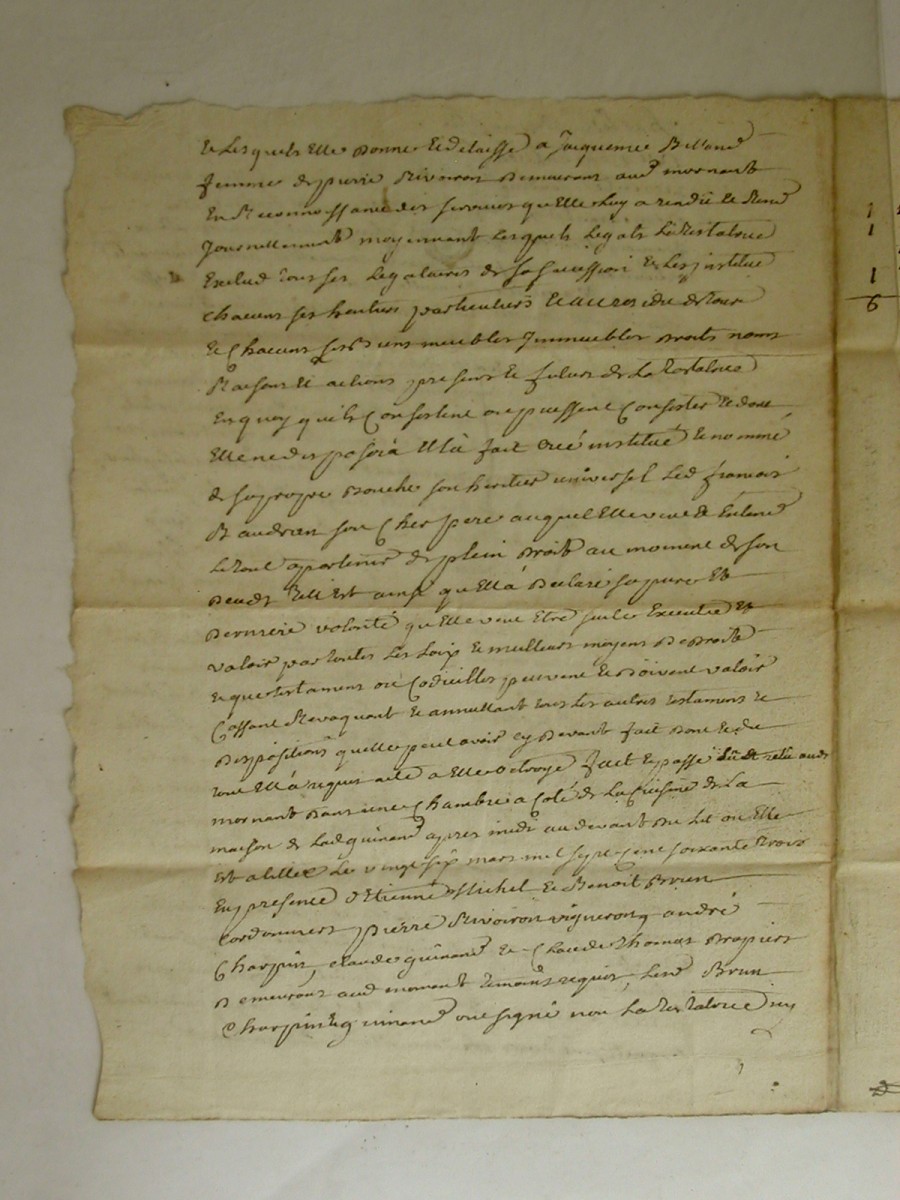 et lesquels elle donne et delaisse a jacquemie Billand
femme de pierre Rivoiron demeurant aud mornant
en Reconnoissance des services quelle luy a rendu et Rend
journellement moyennant lesquels legats la testatrice
exclud tous ses legataires de sa succession et les institue
chacuns ses heritiers particuliers et au residu de tous
et chacuns ses Biens meubles jmmeubles droits noms
Raisons et actions presents et futurs de la testatrice
en quoy quils consistent ou puissent consister et dont
elle ne disposera elle a fait créé institué et nommé
de sa propre Bouche son heritier universel led francois
Baudran son cher pere auquel elle veut et entend
le tout apartenir de plein droit au moment de son
deces telle est ainsi quella declaré sa pure et
derniere volonté quelle veut etre suivie executée et
valoir par toutes les loix et meilleurs moyens de droits
et que testament ou codicilles peuvent et doivent valoir
Cassant Revoquant et annullant tous les autres testaments et
dispositions quelle peut avoir cy devant fait dont et du
tout ella requis acte a elle octroyé fait et passé lû et relu aud
mornant dans une chambre a coté de la cuisine de la
maison de lad guinand apres midi au devant du lit ou elle
est alittée le vingt six mars mil sept cent soixante trois
en presence d'Etienne Michel et Benoit Brun
cordonniers pierre Rivoiron vigneron andré
Charpin, claude guinand et Claude thomas drapiers
demeurant aud mornant temoins requis, lesd Brun
Charpin et guinand ont signé non la testatrice ny